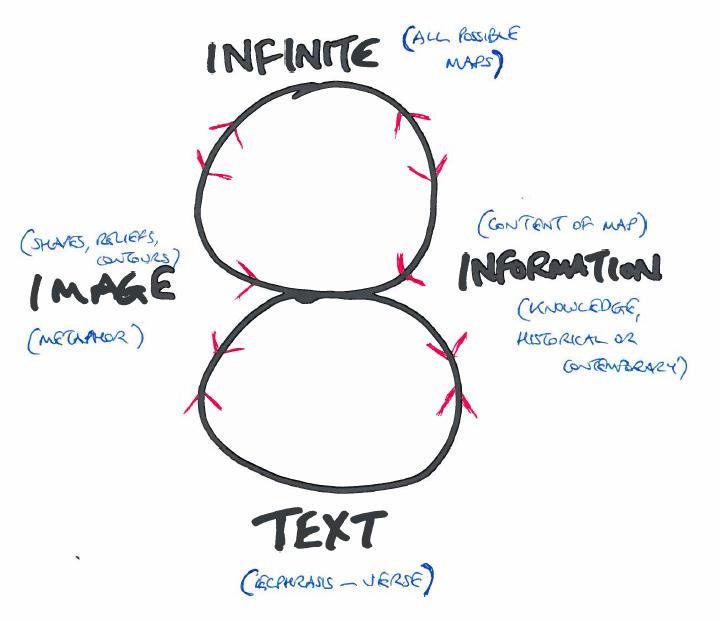 INFINITE
(ALL POSSIBLE
MAPS)
(SHAPES, RELIEFS,
CONTOURS)
IMAGE
(METAPHOR)
(CONTENT OF MAP)
INFORMATION
(KNOWLEDGE,
HISTORICAL OR
CONTEMPORARY)
TEXT
(ECPHRASIS – VERSE)